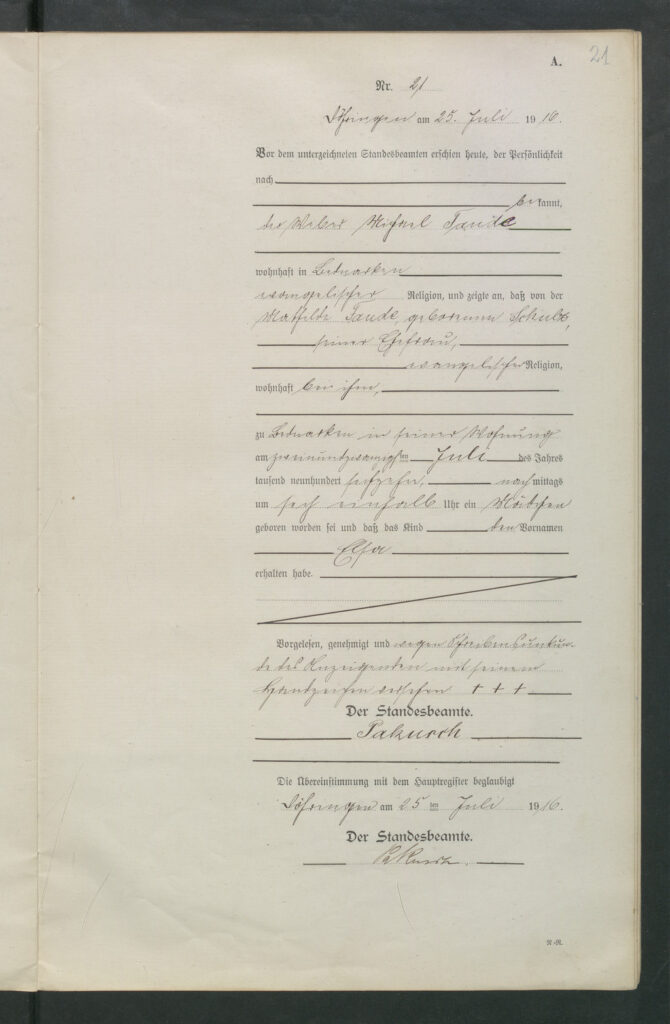 21
A.
Nr. 21
Döhringen am 25. Juli 1916.
Vor dem unterzeichneten Standesbeamten erschien heute, der Persönlichkeit
nach
bekannt,
der Weber Michael Taude
wohnhaft in Bednarken
evangelischer Religion, und zeigte an, daß von der
Mathilde Taude, geborenen Schulz,
seiner Ehefrau,
evangelischer Religion,
wohnhaft bei ihm,
zu Bednarken in seiner Wohnung
am zweiundzwanzigsten Juli des Jahres
tausend neunhundert sechzehn, nachmittags
um sechseinhalb Uhr ein Mädchen
geboren worden sei und daß das Kind den Vornamen
Elsa
erhalten habe.
Vorgelesen, genehmigt und wegen Schreibensunkun-
de des Anzeigenden mit seinem
Handzeichen versehen + + +
Der Standesbeamte.
Pakusch
Die Übereinstimmung mit dem Hauptregister beglaubigt
Döhringen am 25 ten Juli 1916.
Der Standesbeamte.